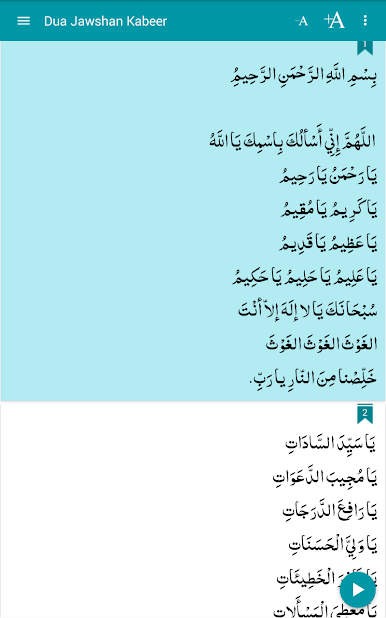 Dua Jawshan Kabeer
-A
+A
1
بِسْمِ اللَّهِ الرَّحْمَنِ الرَّحِيمِ
اللَّهُمَّ إِنِّي أَسْأَلُكَ بِاسْمِكَ يَا اللَّهُ
يَا رَحْمَنُ يَا رَحِيمُ
يَا كَرِيمُ يَا مُقِيمُ
يَا عَظِيمُ يَا قَدِيمُ
يَا عَلِيمُ يَا حَلِيمُ يَا حَكِيمُ
سُبْحَانَكَ يَا لا إِلَهَ إِلاّ أَنْتَ
الغَوْثَ الغَوْثَ الغَوْثَ
خَلِّصْنا مِنَ النّارِ يا رَبِّ.
2
يَا سَيِّدَ السَّادَاتِ
يَا مُجِيبَ الدَّعَوَاتِ
يَا رَافِعَ الدَّرَجَاتِ
يَا وَلِيَّ الْحَسَنَاتِ
الْخَطِيئَاتِ
يَا مُعْطِيَ الْمَسْأَلاتِ